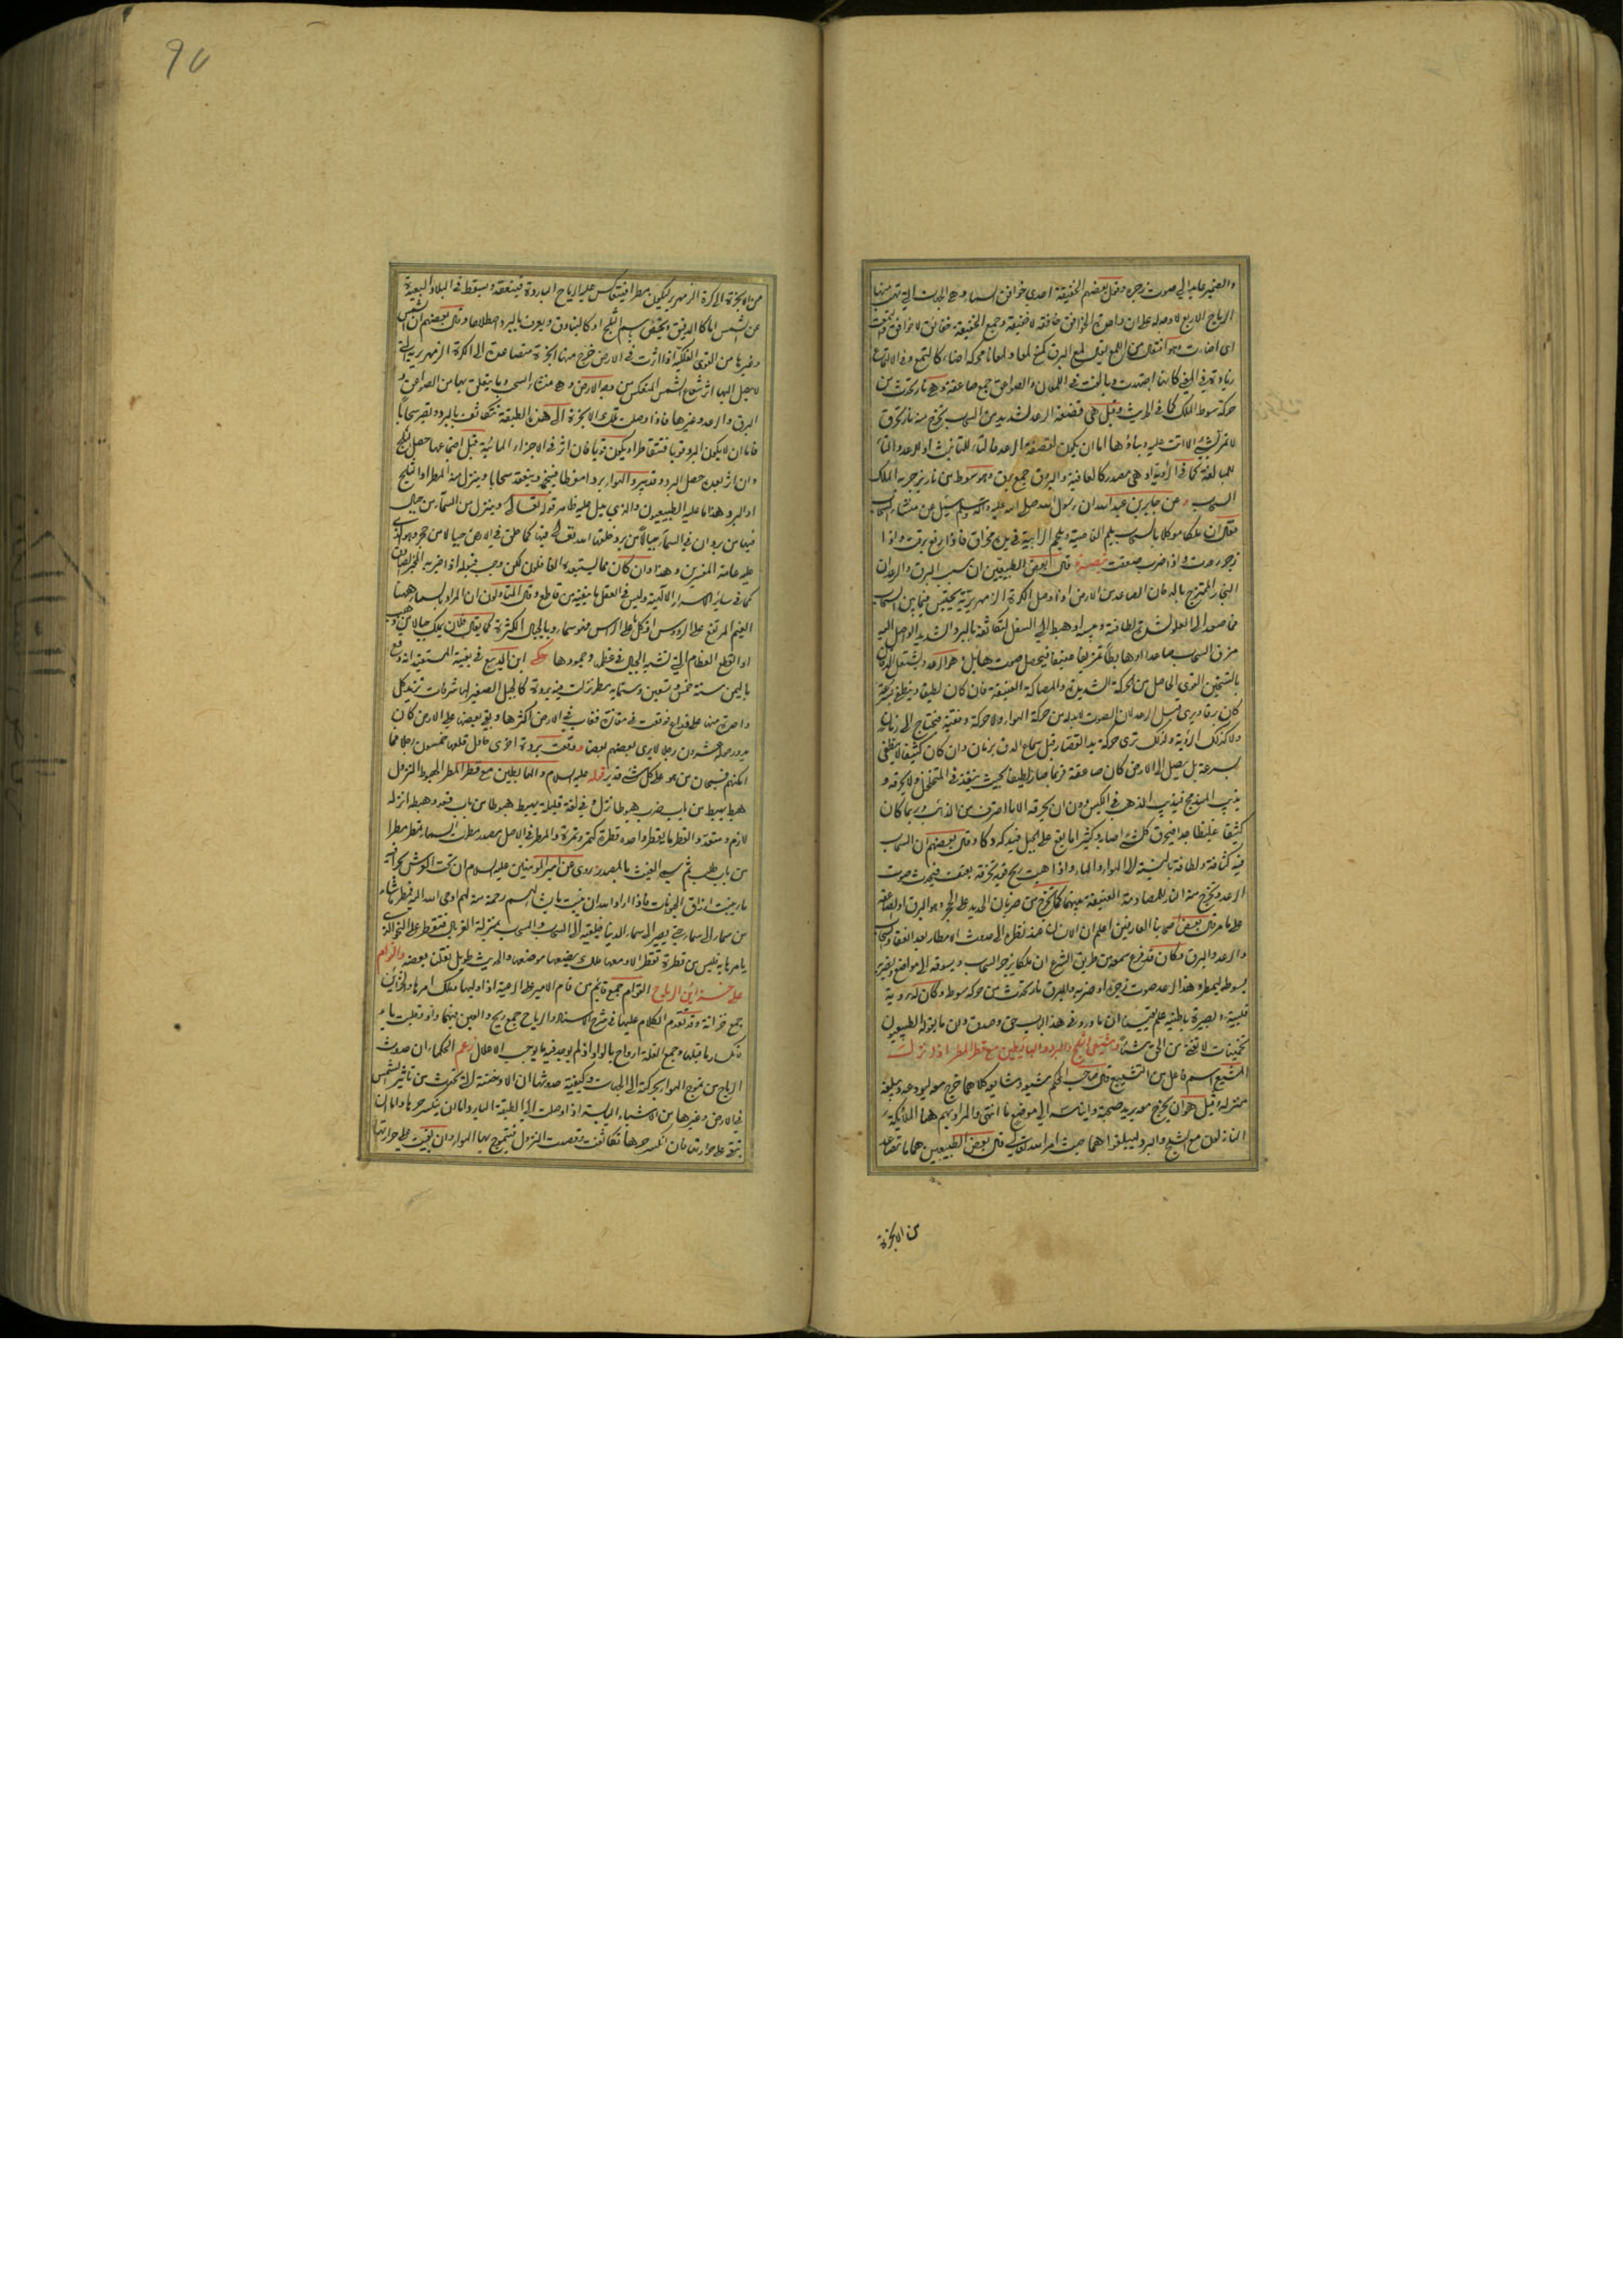 والضمير عايد الى صوت زجره وقيل بعضهم الخفيفة احدى خوافق السماء وهي الجهات التي تهب منها
الرياح الاربع لا وجه له على ان واحدة الخوافق خافقة لا خفيقة وجمع الخفيقة خفائق لا خوافق
اى اضاءت وهو افتعل من اللمع يقال لمع البرق كمنع لمعا ولمعانا محركة اضاء كالتمع وفي الالتماع
زيادة
حركة سوط الملك كما في الحديث وقيل هي قصفة الرعد الشديدة من السحاب يخرج منه نار تحرق
لا تمر بشئ الا اتت عليه وبناؤها اما ان يكون لقصفة الرعد فالتاء للتانيث او للرعد والتاء
للمبالغة كما في الراوية او هي مصدر كالعافية والبروق جمع برق وهو سوط من نار يزجر به الملك
السحاب وعن جابر بن عبد الله ان رسول الله صلى الله عليه وآله وسلم سئل عن منشاء السحاب
فقال ان ملكا موكلا بالسحاب يلم القاصية ويلحم الرابية في يده مخراق فاذا رفع برقت واذا
زجر رعدت واذا ضرب صعقت تبصرة قال بعض الطبيعيين ان سبب البرق والرعد ان
البخار الممتزج بالدخان الصاعد من الارض اذا وصل الكرة الزمهريرية يحتبس فيما بين السحاب
فان صعد الى العلو لشدة لطافته وحره او هبط الى السفل لتكاثفه بالبرد الشديد الواصل اليه
مزق السحاب صاعدا او هابطا تمزيقا عنيفا فيحصل صوت هايل هو الرعد ويشتعل الدخان
بالتسخين القوى الحاصل من الحركة الشديدة والمصاكة العنيفة فان كان لطيفا وينطفئ بسرعة
كان برقا ويرى قبل الرعد لان الصوت لا بد له من حركة الهواء ولا حركة دفعية فيحتاج الى زمان
ولا كذلك الرؤية ولذلك ترى حركة يد القصار قبل سماع الدق بزمان وان كان كثيفا لا ينطفئ
بسرعة بل يصل الى الارض كان صاعقة فربما صار لطيفا بحيث ينفذ في المتخلخل ولا يحرقه و
يذيب المندمج فيذيب الذهب في الكيس دون ان يحرقه الا ما احترق من الذائب وربما كان
كثيفا غليظا جدا فيحرق كل شئ اصابه وكثيرا ما يقع على الجبل فيدكه دكا وقال بعضهم ان السحاب
فيه كثافة ولطافة بالنسبة الى الهواء والماء واذا هبت ريح قوية تخرقه بعنف فيحدث صوت
الرعد ويخرج منه النار للمصادمة العنيفة بينهما كما تخرج من ضربان الحديد على الحجر وهو البرق او الصاعقة
على ما مر قال بعض اصحابنا العارفين اعلم ان الانسان عند نظره الى حدوث الامطار بعد انعقاد السحاب
والرعد والبرق وكان قد قرع سمعه من طريق الشرع ان ملكا يزجر السحاب ويسوقه الى مواضع ويضربه
بسوط ليمطره هذا الرعد صوت زجره او ضربه والبرق نار تحدث من حركة سوطه وكان له روية
قلبية وبصيرة باطنية علم يقينا ان ما ورد في هذا الباب حق وصدق دون ما يقوله الطبيعيون
تخمينات لا تغني من الحق شيئا ومشيعي الثلج والبرد والهابطين مع قطر المطر اذا نزلت
المشيع اسم فاعل من التشييع قال صاحب المحكم شيعه وشايعه كلاهما خرج معه ليودعه ويبلغه
منزله وقيل هو ان يخرج معه يريد صحبته وايناسه الى موضع ما انتهى والمراد بهم هنا الملائكة
النازلون مع الثلج والبرد ليبلغوا بهما حيث امر الله تعالى قال بعض الطبيعيين هما ما تصاعد
من الابخرة
٩٥
من الابخرة الى كرة الزمهرير فيكون مطرا فينعكس عليه الرياح الباردة فينعقد ويسقط في البلاد البعيدة
عن الشمس اما كالدقيق ويختص باسم الثلج او كالبنادق ويعرف بالبرد اصطلاحا وقال بعضهم ان الشمس
وغيرها من القوى الفلكية اذا اثرت في الارض خرج منها ابخرة متصاعدة الى الكرة الزمهريرية التي
لا يصل اليها اثر شعاع الشمس المنعكس من وجه الارض وهي منشاء السحب وما يتعلق بها من الصواعق و
البرق والرعد وغيرها فاذا وصلت تلك الابخرة الى هذه الطبقة تكاثفت بالبرد وتصير سحابا
فاما ان لا يكون البرد قويا فتتقاطر او يكون قويا فان اثر في الاجزاء المائية قبل اجتماعها حصل الثلج
وان اثر بعده حصل البرد وقد يبرد الهواء بردا مفرطا فينجمد وينعقد سحابا وينزل منه المطر او الثلج
او البرد هذا ما عليه الطبيعيون والذي يدل عليه ظاهر قوله تعالى وينزل من السماء من جبال
فيها من برد ان في السماء جبالا من برد خلقها الله تعالى فيها كما خلق في الارض جبالا من حجر وهو الذي
عليه عامة المفسرين وهذا وان كان مما يستبعده الغافلون لكن وجب قبوله اذا اخبر به المخبر الصادق
كما في ساير الاسرار الالهية وليس في العقل ما ينفيه من قاطع وقال المتاولون ان المراد بالسماء ههنا
الغيم المرتفع على الرؤوس اذ كل ما على الراس فهو سماء وبالجبال الكثرة كما يقال فلان يملك جبالا من ذهب
او القطع العظام التي تشبه الجبال في عظمه وجمودها حكى ابن الديبع في بغية المستفيد انه وقع
باليمن سنة خمس وتسعين وستمايه مطر نزلت فيه بردة كالجبل الصغير لها شرفات تزيد كل
واحدة منها على ذراع فوقعت في مفازة فغاب في الارض اكثرها وبقي بعضها على الارض كان
يدور حوله عشرون رجلا لا يرى بعضهم بعضا ووقعت بردة اخرى حاول قلبها خمسون رجلا فما
امكنهم فسبحان من هو على كل شئ قدير قوله عليه السلام والهابطين مع قطر المطر الهبوط النزول
هبط يهبط من باب ضرب هبوطا نزل وفي لغة قليلة يهبط هبوطا من باب قعد وهبطه انزله
لازم ومتعد والقطر ما يقطر واحده قطرة كتمر وتمرة والمطر في الاصل مصدر مطرت السماء تمطر مطرا
من باب طلب ثم سمى الغيث بالمصدر روى عن امير المؤمنين عليه السلام ان تحت العرش بحرا فيه
ماء ينبت ارزاق الحيوانات فاذا اراد الله ان ينبت ما يشاء لهم رحمة منه لهم اوحى الله اليه فمطر ما شاء
من سماء الى سماء حتى يصير الى سماء الدنيا فيلقيه الى السحاب والسحاب بمنزلة الغربال فتقطر على النحو الذي
يامرها به فليس من قطرة تقطر الا ومعها ملك يضعها موضعها والحديث طويل نقلنا بعضه والقوام
على خزائن الرياح القوام جمع قايم من قام الامير على الرعية اذا وليها وملك امرها والخزائن
جمع خزانة وقد تقدم الكلام عليها في شرح الاسناد والرياح جمع ريح والعين فيهما واو قلبت ياء
لانكسار ما قبلها وجمع القلة ارواح بالواو اذ لم يوجد فيه ما يوجب الاعلال زعم الحكماء ان حدوث
الرياح من تموج الهواء بحركته الى الجهات وكيفية حدوثها ان الادخنة التي تحدث من تاثير الشمس
في الارض وغيرها من الاشياء اليابسة اذا وصلت الى الطبقة الباردة اما ان ينكسر حرها واما ان
تبقى على حرارتها فان انكسر حرها تكاثفت وقصدت النزول فيتموج بها الهواء وان بقيت على حرارتها